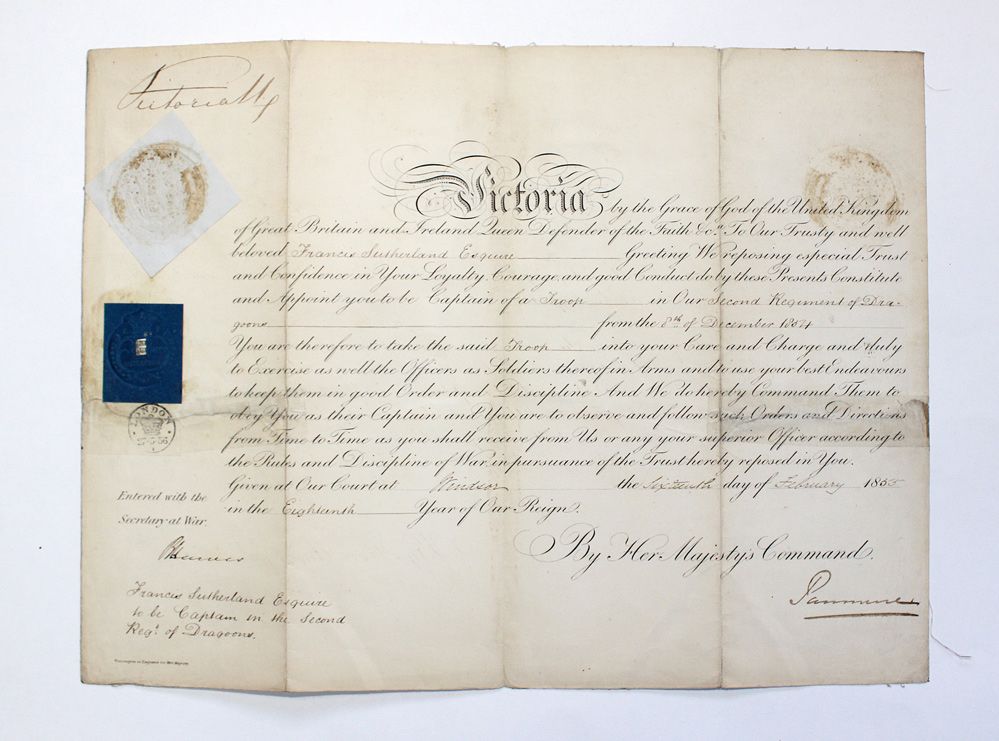 Victoria R
Victoria by the Grace of God of the United Kingdom
of Great Britain and Ireland Queen Defender of the Faith &c. To Our Trusty and well
beloved Francis Sutherland Esquire Greeting We reposing especial Trust
and Confidence in Your Loyalty Courage and good Conduct do by these Presents Constitute
and Appoint you to be Captain of a Troop in Our Second Regiment of Dra-
goons from the 8th of December 1854
You are therefore to take the said Troop into your Care and Charge and duly
to Exercise as well the Officers as Soldiers thereof in Arms and to use your best Endeavours
to keep them in good Order and Discipline And We do hereby Command Them to
obey You as their Captain and You are to observe and follow such Orders and Directions
from Time to Time as you shall receive from Us or any your superior Officer according to
the Rules and Discipline of War, in pursuance of the Trust hereby reposed in You.
Given at Our Court at Windsor the Sixteenth day of February 1855
in the Eighteenth Year of Our Reign.
By Her Majesty's Command.
Panmure
LONDON
Entered with the
Secretary at War
Francis Sutherland Esquire
to be Captain in the Second
Regt. of Dragoons.